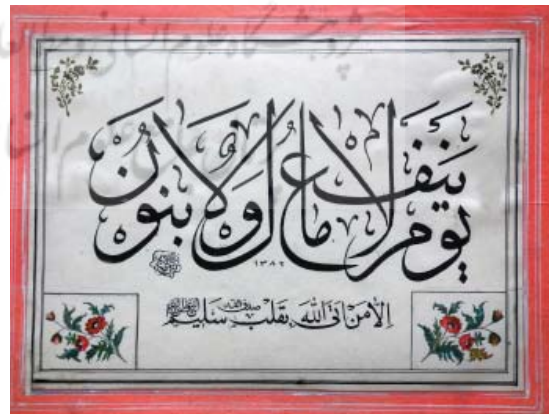 يوم لا ينفع مال ولا بنون
١٣٨٢
إلا من أتى الله بقلب سليم